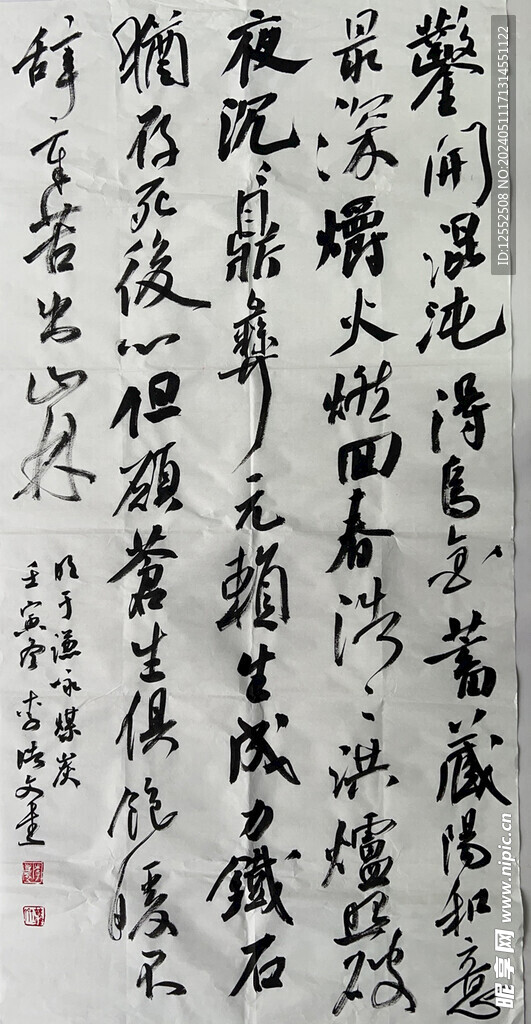 鑿開混沌得烏金蓄藏陽和意
最深爝火燃回春浩〻洪爐照破
夜沉〻鼎彝元賴生成力鐵石
猶存死後心但願蒼生俱飽暖不
辞辛苦出山林
明于謙咏煤炭
壬寅 李 文書
ID:12552508 NO:20240511171314551122
昵享网 www.nipic.cn